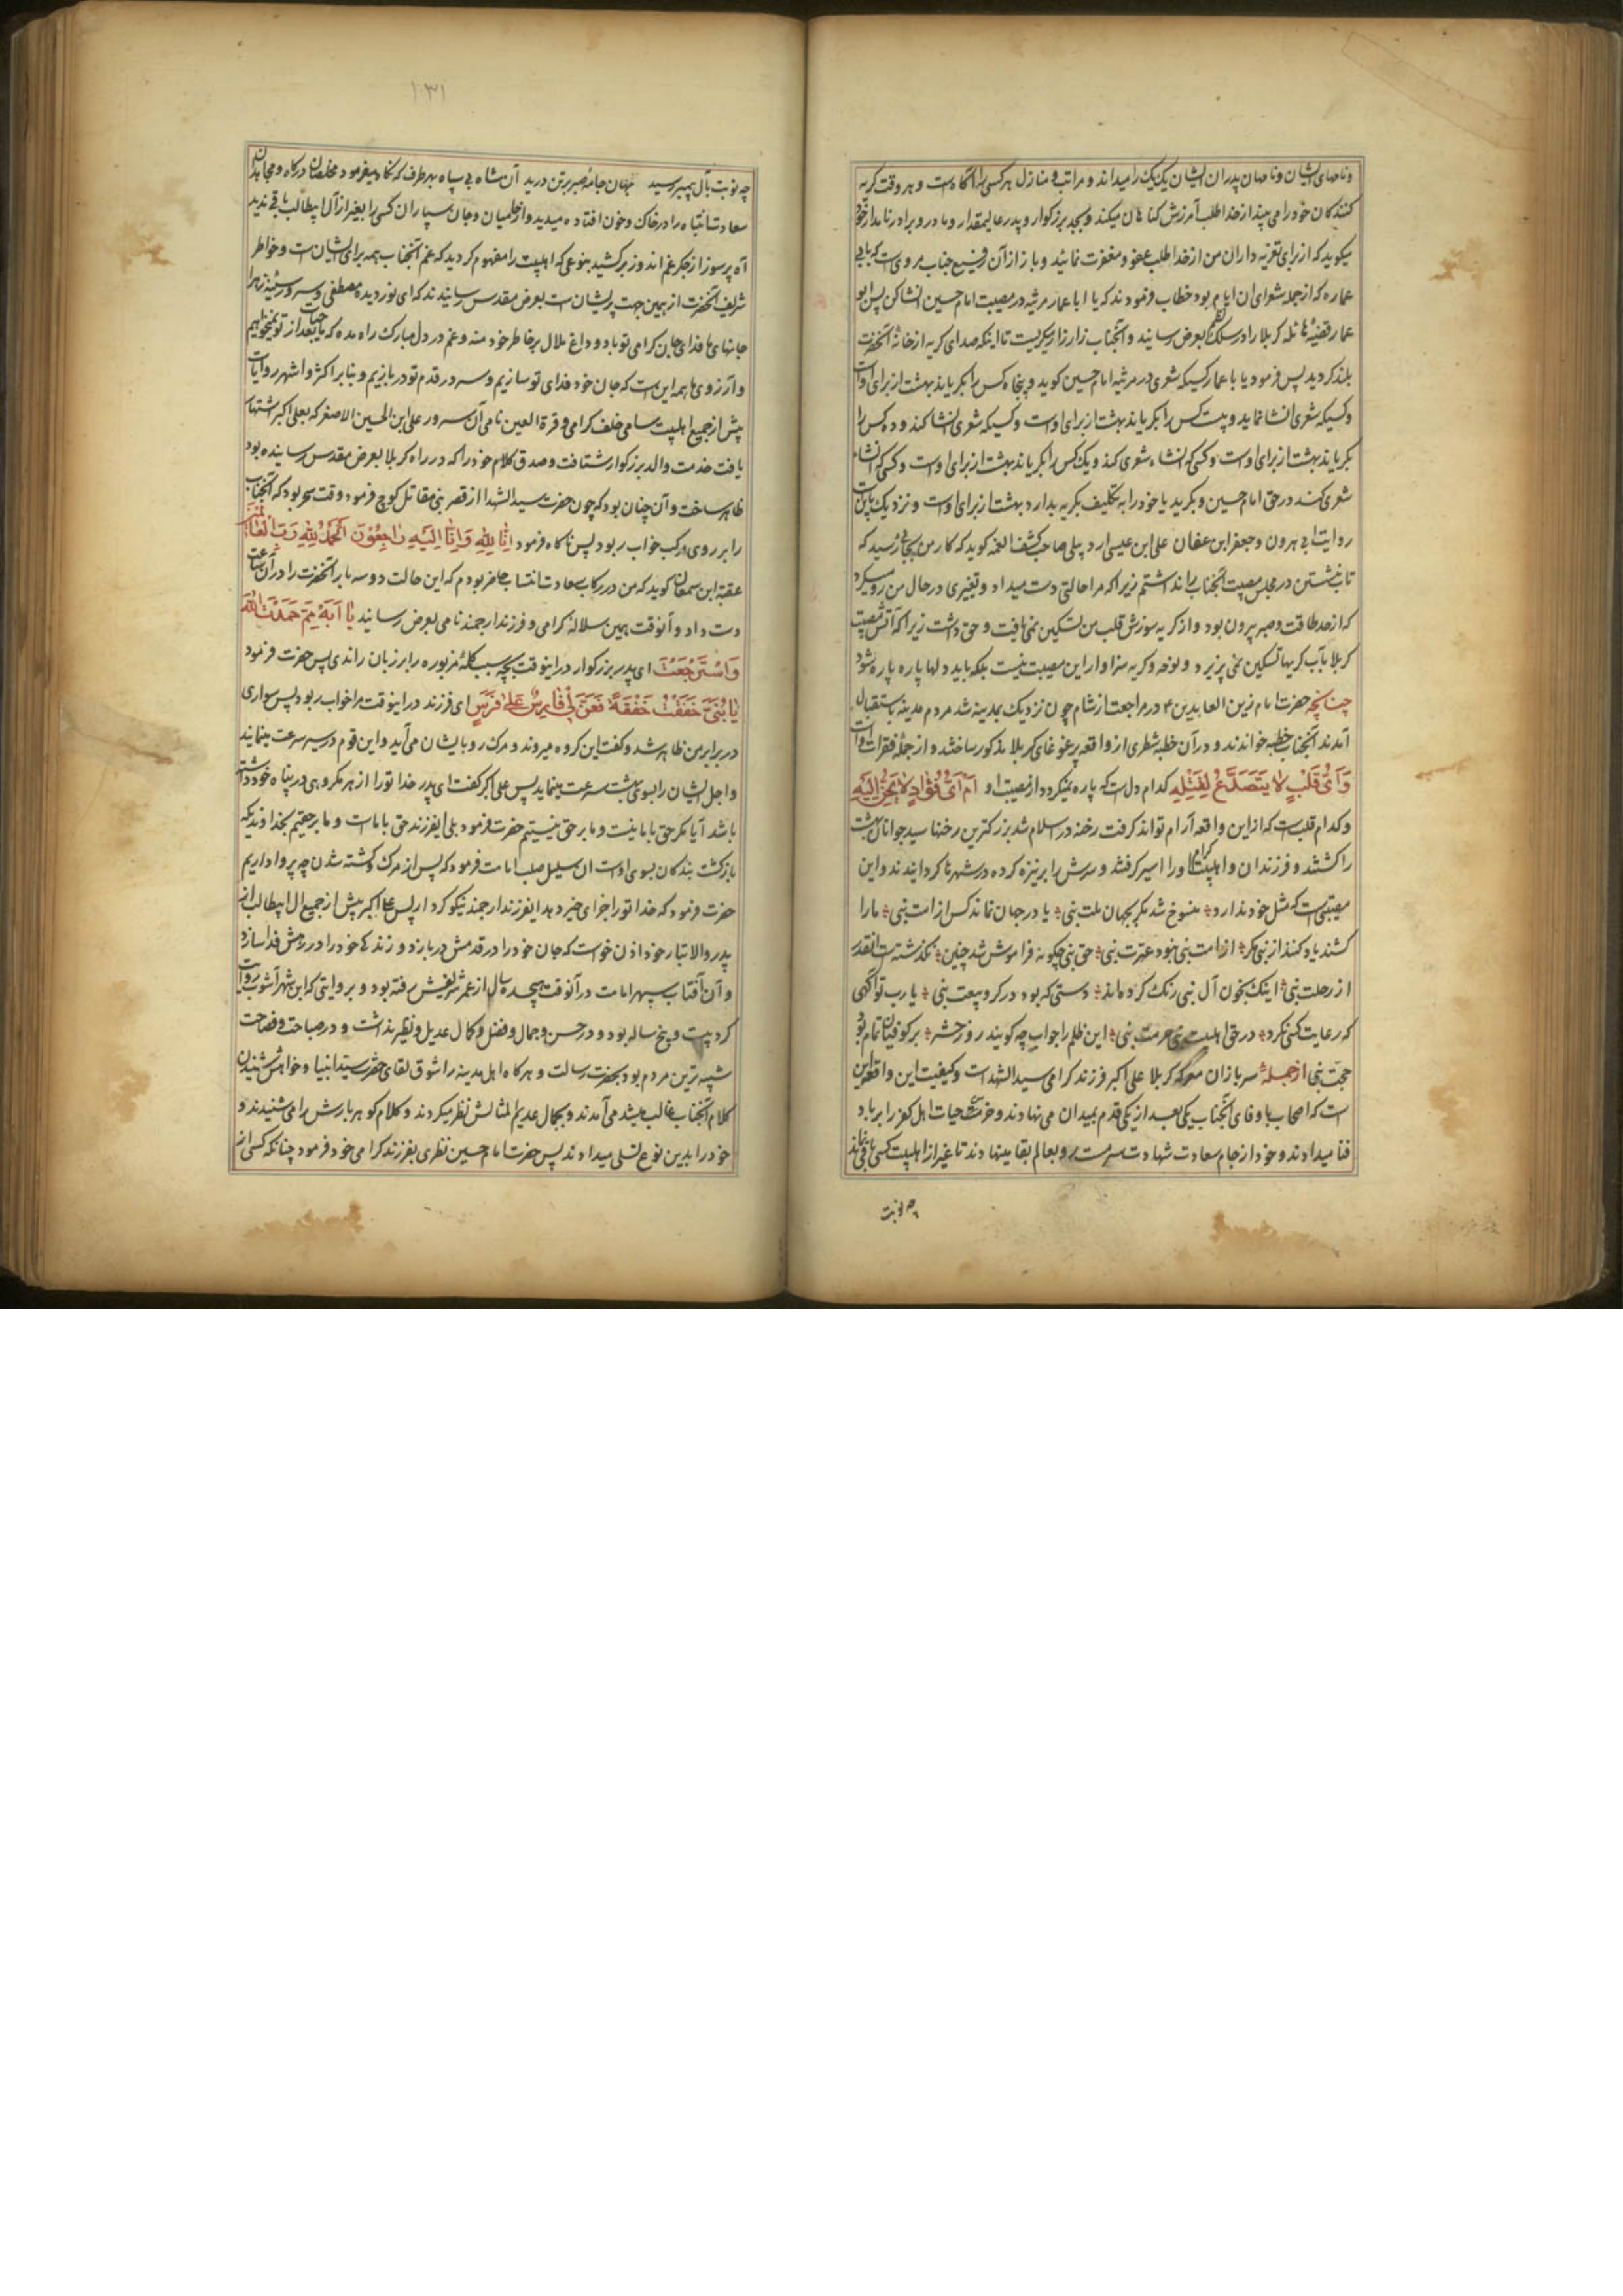 ونامهای ایشان ونامهای پدران ایشان یک یک را میداند و مراتب و منازل هر کسی را آگاه است و هر وقت کریه
کنندکان خود را می بیند از خدا طلب آمرزش کناهان میکند و بجد بزرکوار و پدر عالیمقدار و مادر و برادر نامدار خود
میکوید که از برای تعزیه داران من از خدا طلب عفو و مغفرت نمائید و باز از آن رفیع جناب مرویست که بابی
عماره که از جمله شعرای ان ایام بود خطاب فرمودند که یا ابا عمار مرثیه در مصیبت امام حسین انشا کن پس ابو
عمار قضیهٔ هائله کربلا را در سلک نظم بعرض رسانید و آنجناب زار زار میکریست تا اینکه صدای کریه از خانهٔ آنحضرت
بلند کردید پس فرمود یا با عمار کسیکه شعری در مرثیه امام حسین کوید و پنجاه کس را بکریاند بهشت از برای اوست
وکسیکه شعری انشا نماید و بیست کس را بکریاند بهشت از برای اوست وکسیکه شعری انشا کند و ده کس را
بکریاند بهشت از برای اوست وکسیکه انشاء شعری کند و یک کس را بکریاند بهشت از برای اوست وکسیکه انشاء
شعری کند در حق امام حسین و بکرید یا خود را به تکلیف بکریه بدارد بهشت از برای اوست و نزدیک باین
روایت ابی هرون و جعفر ابن عفان علی ابن عیسی اردبیلی صاحب کشف الغمه کوید که کار من بجائی رسید که
تاب نشستن در مجلس مصیبت آنجناب را نداشتم زیرا که مرا حالتی دست میداد و تغییری در حال من رو میکرد
که از حد طاقت و صبر بیرون بود و از کریه سوزش قلب من تسکین نمی یافت و حق داشت زیرا که آتش مصیبت
کربلا بآب کریها تسکین نمی پزیرد و نوحه و کریه سزاوار این مصیبت نیست بلکه باید دلها پاره پاره شود
چنانچه حضرت امام زین العابدین ع در مراجعت از شام چون نزدیک بمدینه شد مردم مدینه باستقبال
آمدند آنجناب خطبه خواندند و در آن خطبه شطری از واقعه پر غوغای کربلا مذکور ساختند و از جملهٔ فقرات
وَاَیُّ قَلْبٍ لا یَتَصَدَّعُ لِقَتْلِهِ کدام دلست که پاره نمیکردد از مصیبت او اَمْ اَیُّ فُؤادٍ لا یَحِنُّ اِلَیْهِ
وکدام قلب است که از این واقعه آرام تواند کرفت رخنه در اسلام شد بزرکترین رخنها سید جوانان بهشت
را کشتند و فرزندان و اهلبیت کرام او را اسیر کرفتند و سرش را بر نیزه کرده در شهرها کردانیدند و این
مصیبتی است که مثل خود ندارد منسوخ شد مکر بجهان ملت نبی یا در جهان نماند کس از امت نبی ما را
کشند یاد کنند از نبی مکر از امت نبی نبود عترت نبی حق نبی چکونه فراموش شد چنین نکذشته است انقدر
از رحلت نبی اینک بخون آل نبی رنک کرده اند دستی که بود در کرو بیعت نبی یا رب تو آکهی
که رعایت کسی نکرد در حق اهلبیت نبی حرمت نبی این ظلم را جواب چه کویند روز حشر بر کوفیان تمام بود
حجت نبی ازجمله سربازان معرکه کربلا علی اکبر فرزند کرامی سید الشهداست و کیفیت این واقعه این
است که اصحاب با وفای آنجناب یکی بعد از یکی قدم بمیدان می نهادند و خرمن حیات اهل کفر را بر باد
فنا میدادند و خود از جام سعادت شهادت سرمست رو بعالم بقا مینهادند تا غیر از اهلبیت کسی باقی نماند
چه نوبت
۱۳۱
چه نوبت بآل پیمبر رسید جهان جامهٔ صبر بر تن درید آن شاه بی سپاه بهر طرف که نکاه میفرمود مخلصان درکاه و محبان
سعادت انتباه را در خاک و خون افتاده میدید و از جلیسان و جان سپاران کسی را بغیر از آل ابیطالب باقی ندید
آه پر سوز از جکر غم اندوز برکشید بنوعی که اهلبیت را مفهوم کردید که غم آنجناب همه برای ایشان است و خواطر
شریف آنحضرت از همین جهت پریشان است بعرض مقدس رسانیدند که ای نور دیده مصطفی و سرور سینه زهرا
جانهای ما فدای جان کرامی تو باد و داغ ملال بر خاطر خود منه و غم در دل مبارک راه مده که ما حیات بعد از تو نمیخواهیم
و آرزوی ما همه این است که جان خود فدای تو سازیم و سر در قدم تو در بازیم و بنا بر اکثر و اشهر روایات
پیش از جمیع اهلبیت سامی خلف کرامی و قرة العین نامی آن سرور علی ابن الحسین الاصغر که بعلی اکبر اشتهار
یافت خدمت والد بزرکوار شتافت و صدق کلام خود را که در راه کربلا بعرض مقدس رسانیده بود
ظاهر ساخت و آن چنان بود که چون حضرت سید الشهدا از قصر بنی مقاتل کوچ فرمود وقت سحر بود که آنجناب
را بر روی مرکب خواب ربود پس ناکاه فرمود اِنّا لِلّهِ وَاِنّا اِلَیْهِ راجِعُوْنَ اَلْحَمْدُ لِلّهِ رَبِّ الْعالَمِیْنَ
عقبة ابن سمعان کوید که من در رکاب سعادت انتساب حاضر بودم که این حالت دو سه بار آنحضرت را در آن ساعت
دست داد و آنوقت همین سلالهٔ کرامی و فرزند ارجمند نامی بعرض رسانید یا اَبَهْ مِمَّ حَمَدْتَ اللّه
وَاسْتَرْجَعْتَ ای پدر بزرکوار در اینوقت بچه سبب کلمهٔ مزبوره را بر زبان راندی پس حضرت فرمود
یا بُنَیَّ خَفَقْتُ خَفْقَةً فَعَنَّ لِیْ فارِسٌ عَلی فَرَسٍ ای فرزند در اینوقت مرا خواب ربود پس سواری
در برابر من ظاهر شد و کفت این کروه میروند و مرک رو بایشان می آید و این قوم در سیر سرعت مینمایند
و اجل ایشان را بسوی بهشت سرعت مینماید پس علی اکبر کفت ای پدر خدا تو را از هر مکروهی در پناه خود داشته
باشد آیا مکر حق با ما نیست و ما بر حق نیستیم حضرت فرمود بلی ایفرزند حق با ماست و ما بر حقیم بخداوندیکه
بازکشت بندکان بسوی اوست ان سلیل صلب امامت فرمود که پس از مرک و کشته شدن چه پروا داریم
حضرت فرمود که خدا تو را جزای خیر دهد ایفرزند ارجمند نیکو کردار پس علی اکبر پیش از جمیع ال ابیطالب از
پدر والاتبار خود اذن خواست که جان خود را در قدمش در بازد و زندکی خود را در رهش فدا سازد
و آن آفتاب سپهر امامت در آنوقت هیجده سال از عمر شریفش رفته بود و بروایتی که ابن شهر آشوب روایت
کرد بیست و پنج ساله بود و در حسن و جمال و فضل و کمال عدیل و نظیر نداشت و در صباحت و فصاحت
شبیه ترین مردم بود بحضرت رسالت و هرکاه اهل مدینه را شوق لقای حضرت سید انبیا و خواهش شنیدن
کلام آنجناب غالب میشد می آمدند و بجمال عدیم المثالش نظر میکردند و کلام کوهر بارش را می شنیدند و
خود را بدین نوع تسلی میدادند پس حضرت امام حسین نظری بفرزند کرامی خود فرمود چنانکه کسی از